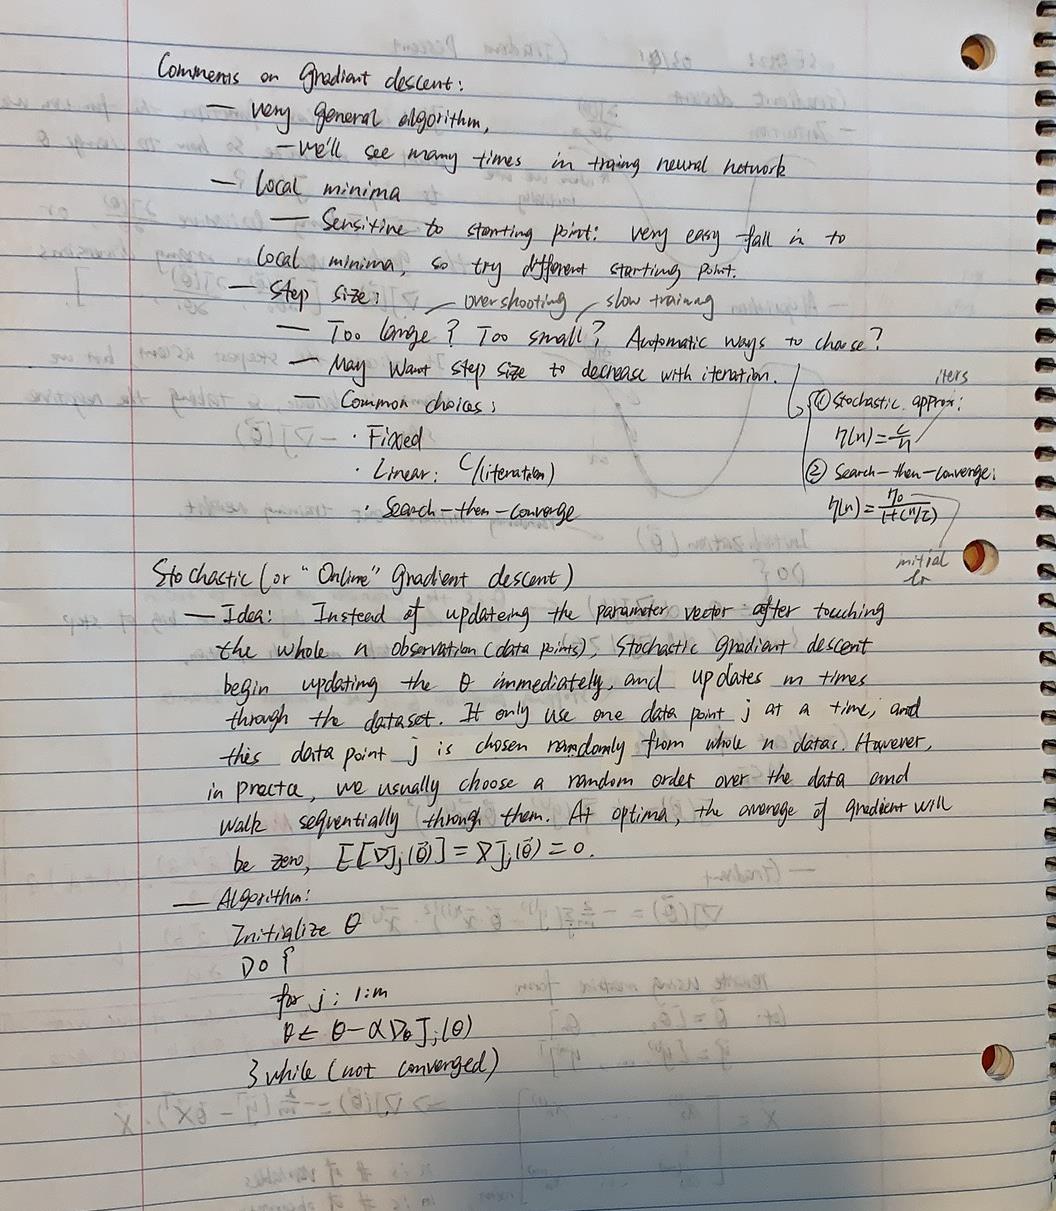 Comments on gradient descent:
— very general algorithm,
— we'll see many times in traing neural network
— local minima
— Sensitive to starting point: very easy fall in to
local minima, so try different starting point.
— Step size: overshooting slow training
— Too large? Too small? Automatic ways to choose?
— May want step size to decrease with iteration.
— Common choices:
· Fixed
· Linear: C/(iteration)
· Search-then-converge
iters
① Stochastic approx:
η(n) = c/n
② Search-then-converge:
η(n) = η0/(1+(n/τ))
initial
lr
Stochastic (or "Online" gradient descent)
— Idea: Instead of updatering the parameter vector after touching
the whole n observation (data points), Stochastic gradient descent
begin updating the θ immediately, and updates m times
through the dataset. It only use one data point j at a time, and
this data point j is chosen randomly from whole n datas. However,
in practa, we usually choose a random order over the data and
walk sequentially through them. At optima, the average of gradient will
be zero, E[∇Jj(θ⃗)] = ∇Jj(θ⃗) = 0.
— Algorithm:
Initialize θ
Do {
for j: 1:m
θ ← θ - α∇θJj(θ)
} while (not converged)